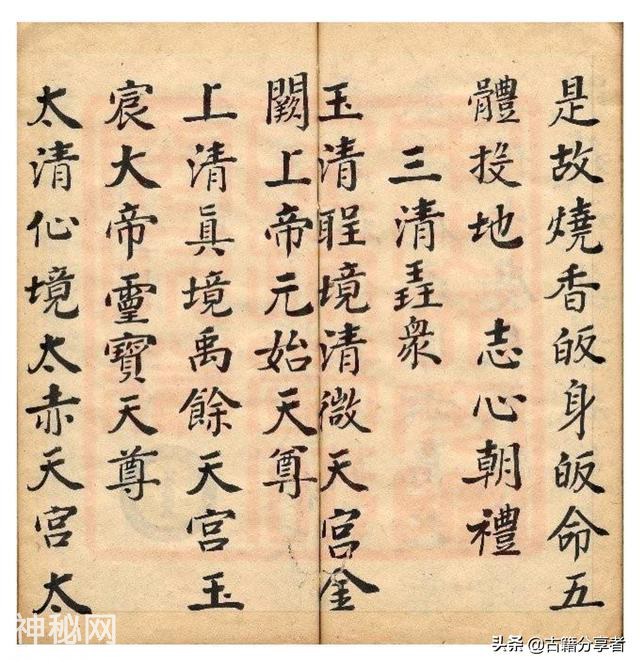 是故燒香皈身皈命五
體投地 志心朝禮
三清聖衆
玉清聖境清微天宮金
闕上帝元始天尊
上清眞境禹餘天宮玉
宸大帝靈寶天尊
太清仙境太赤天宮太
神秘网
头条 @古籍分享者